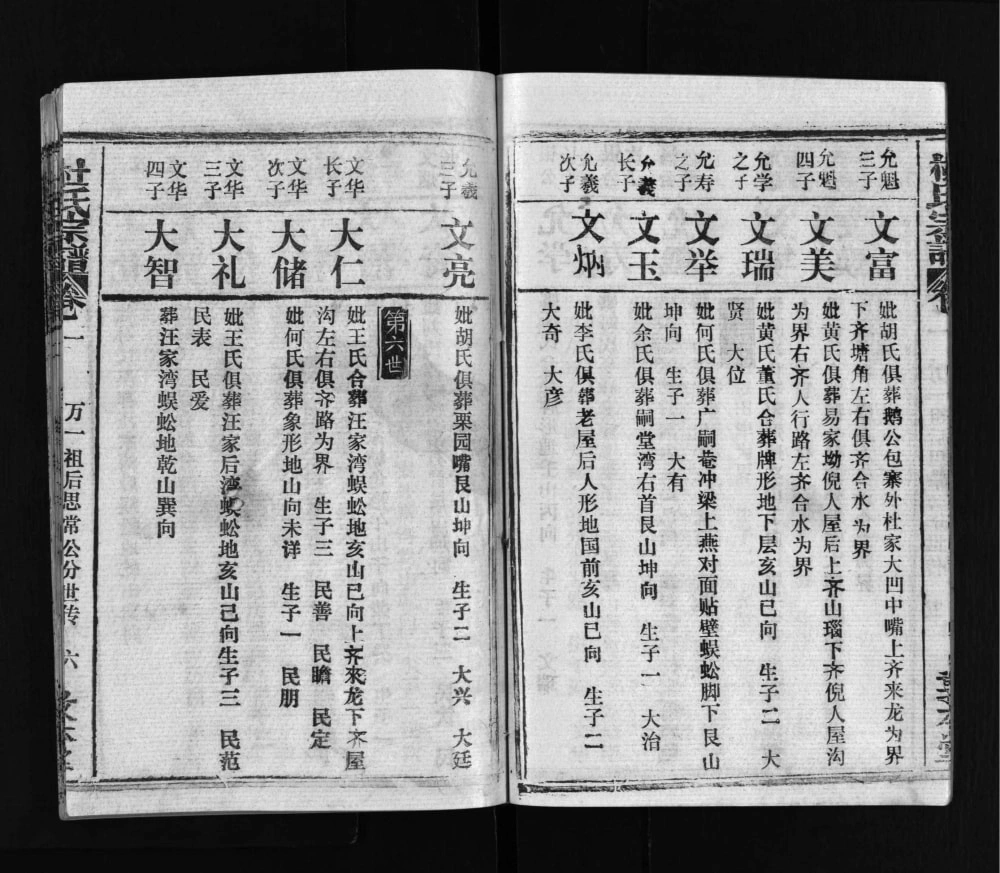 杜氏宗譜
允魁三子
文富
妣胡氏俱葬鹅公包寨外杜家大凹中嘴上齐来龙为界
下齐塘角左右俱齐合水为界
允魁四子
文美
妣黄氏俱葬易家坳倪人屋后上齐山瑙下齐倪人屋沟
为界右齐人行路左齐合水为界
允学之子
文瑞
妣黄氏董氏合葬牌形地下层亥山巳向 生子二 大
贤 大位
允寿之子
文举
妣何氏俱葬广嗣菴冲梁上燕对面贴壁蜈蚣脚下艮山
坤向 生子一 大有
允義长子
文玉
妣余氏俱葬嗣堂湾右首艮山坤向 生子一 大治
允義次子
文炳
妣李氏俱葬老屋后人形地国前亥山巳向 生子二
大奇 大彦
允義三子
文亮
妣胡氏俱葬栗园嘴艮山坤向 生子二 大兴 大廷
第六世
文华长子
大仁
妣王氏合葬汪家湾蜈蚣地亥山巳向上齐来龙下齐屋
沟左右俱齐路为界 生子三 民善 民瞻 民定
文华次子
大储
妣何氏俱葬象形地山向未详 生子一 民朋
文华三子
大礼
妣王氏俱葬汪家后湾蜈蚣地亥山巳向生子三 民范
民表 民爱
文华四子
大智
葬汪家湾蜈蚣地乾山巽向
杜氏宗譜 卷一 万一祖后思常公分世传 六